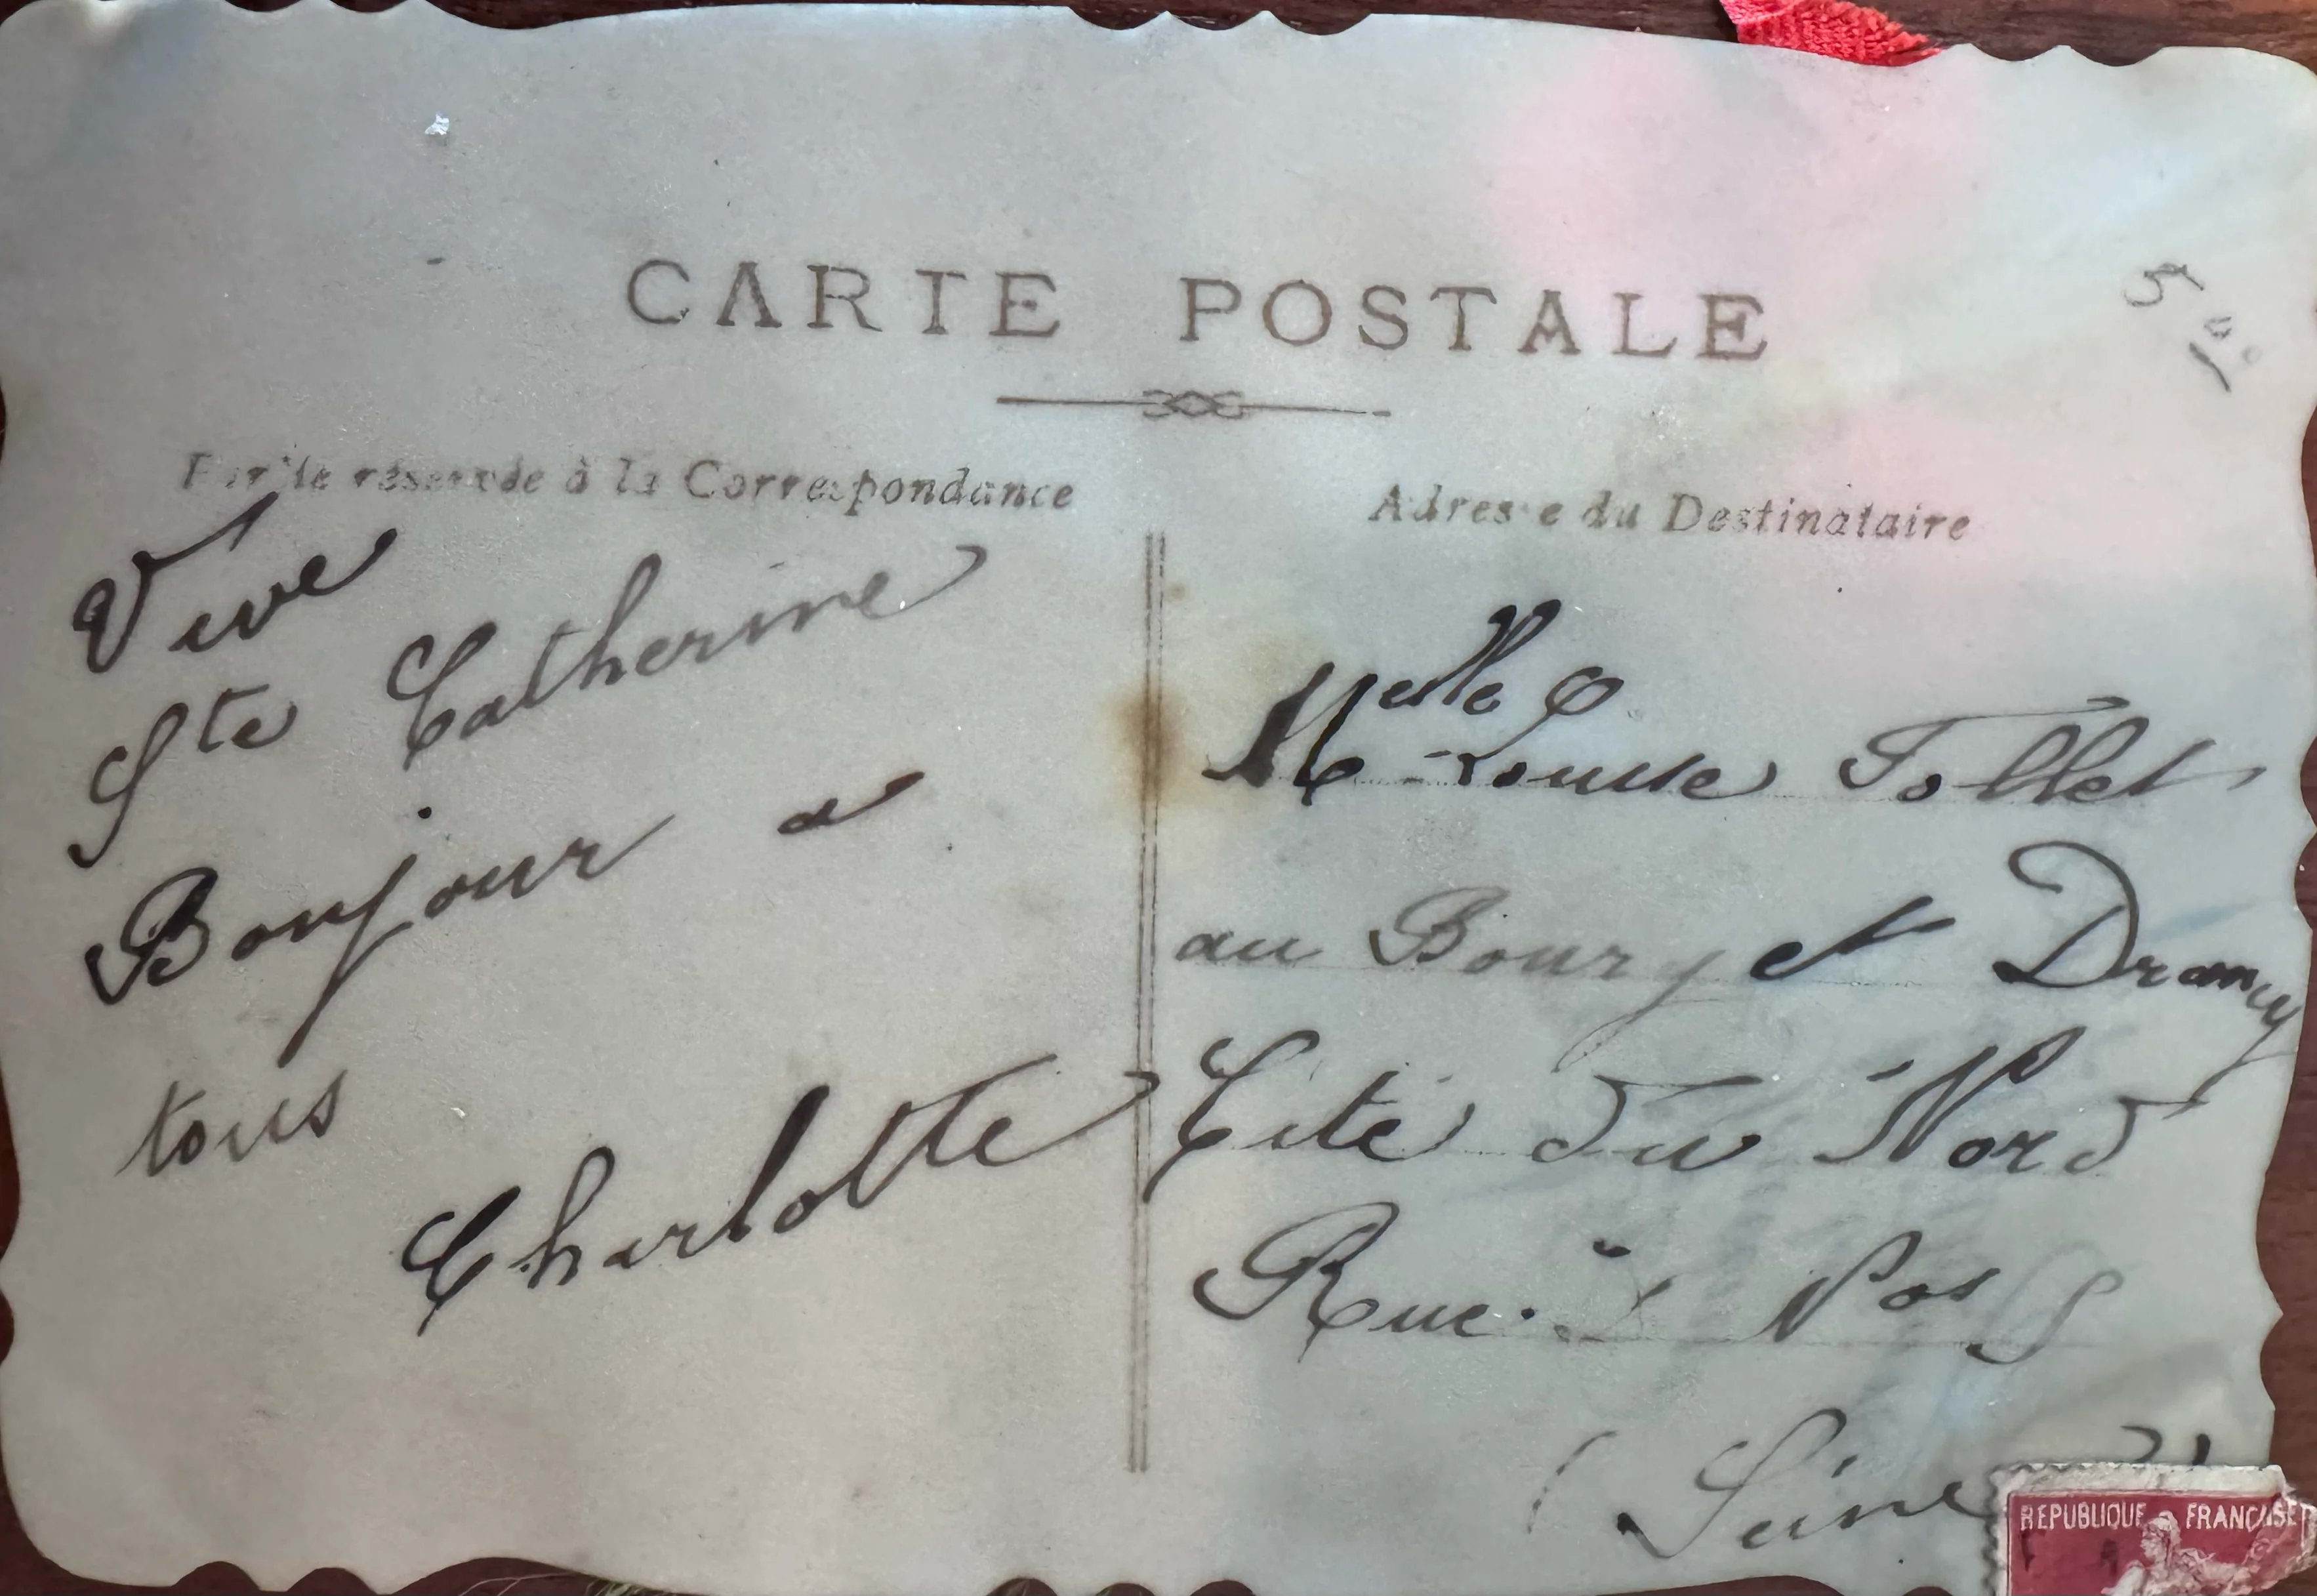 CARTE POSTALE
Partie réservée à la Correspondance
Adresse du Destinataire
Vive
Ste Catherine
Bonjour a
tous
Charlotte
Melle
Louise Follet
au Bourget Drancy
Cité du Nord
Rue
(Seine)
REPUBLIQUE FRANÇAISE